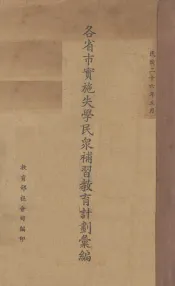 民國二十六年五月
各省市實施失學民眾補習教育計劃彙編
教育部社會司編印